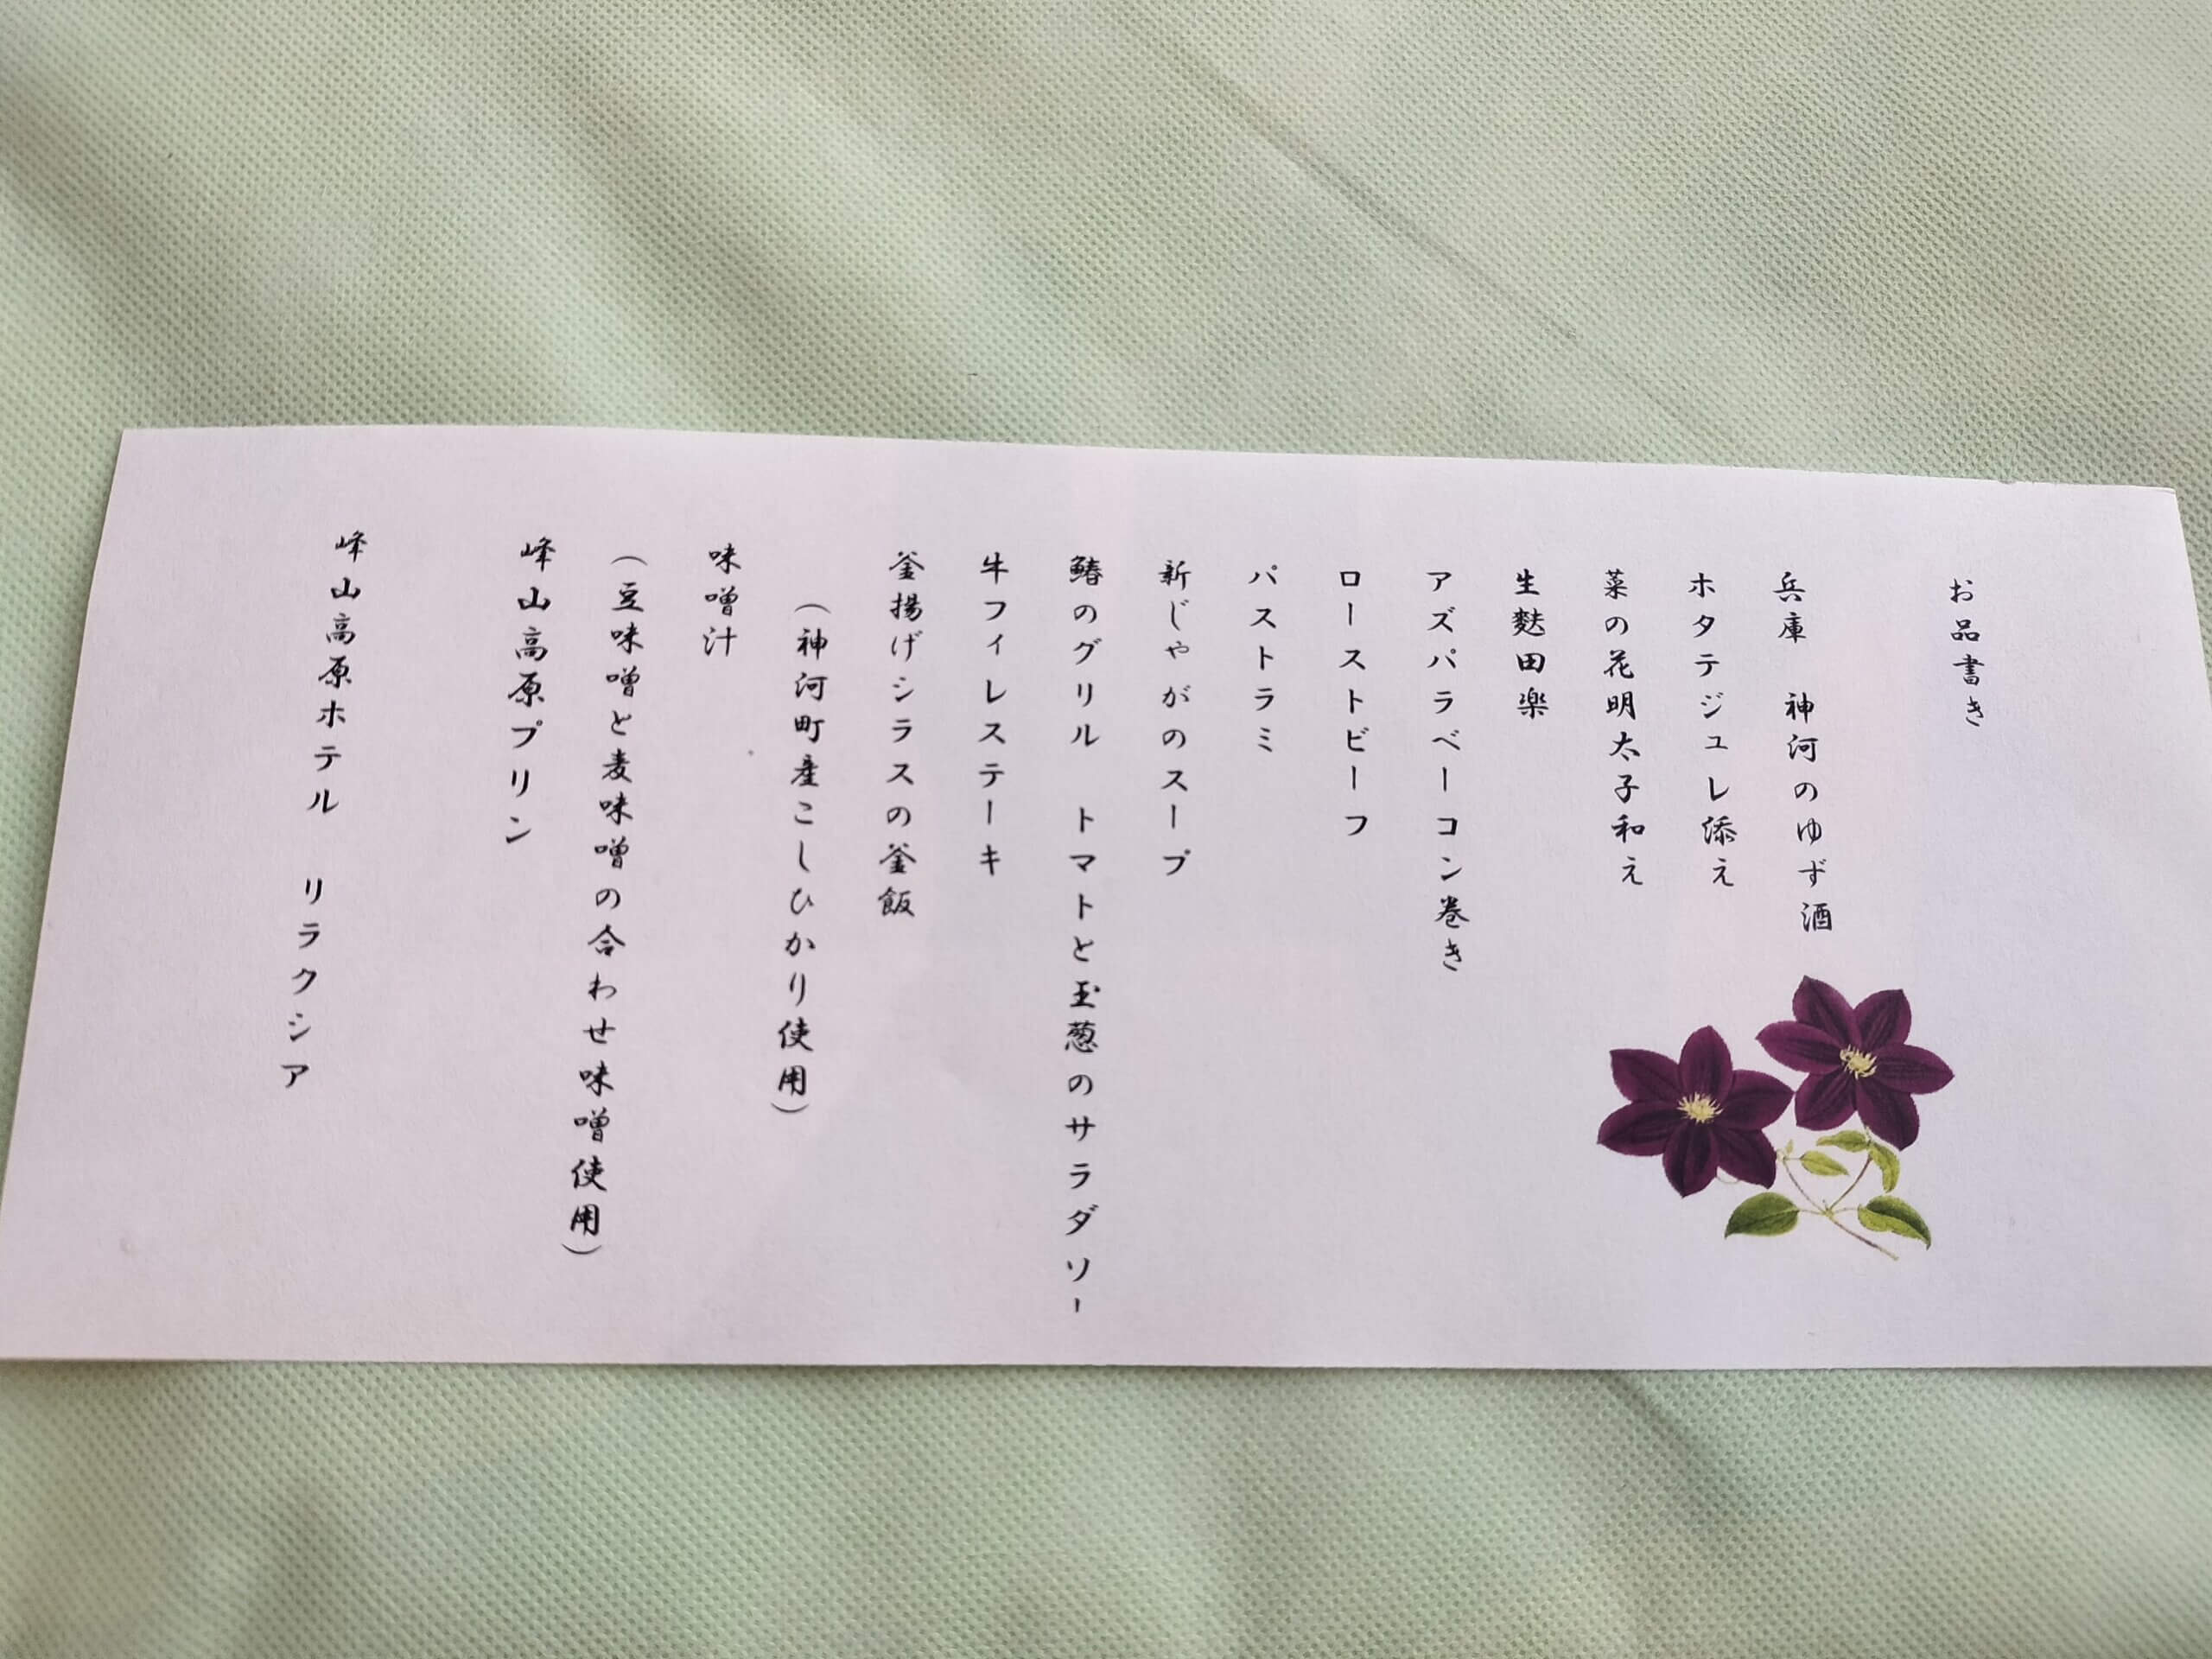 お品書き
兵庫　神河のゆず酒
ホタテジュレ添え
菜の花明太子和え
生麩田楽
アズパラベーコン巻き
ローストビーフ
パストラミ
新じゃがのスープ
鰆のグリル　トマトと玉葱のサラダソー
牛フィレステーキ
釜揚げシラスの釜飯
（神河町産こしひかり使用）
味噌汁
（豆味噌と麦味噌の合わせ味噌使用）
峰山高原プリン
峰山高原ホテル　リラクシア